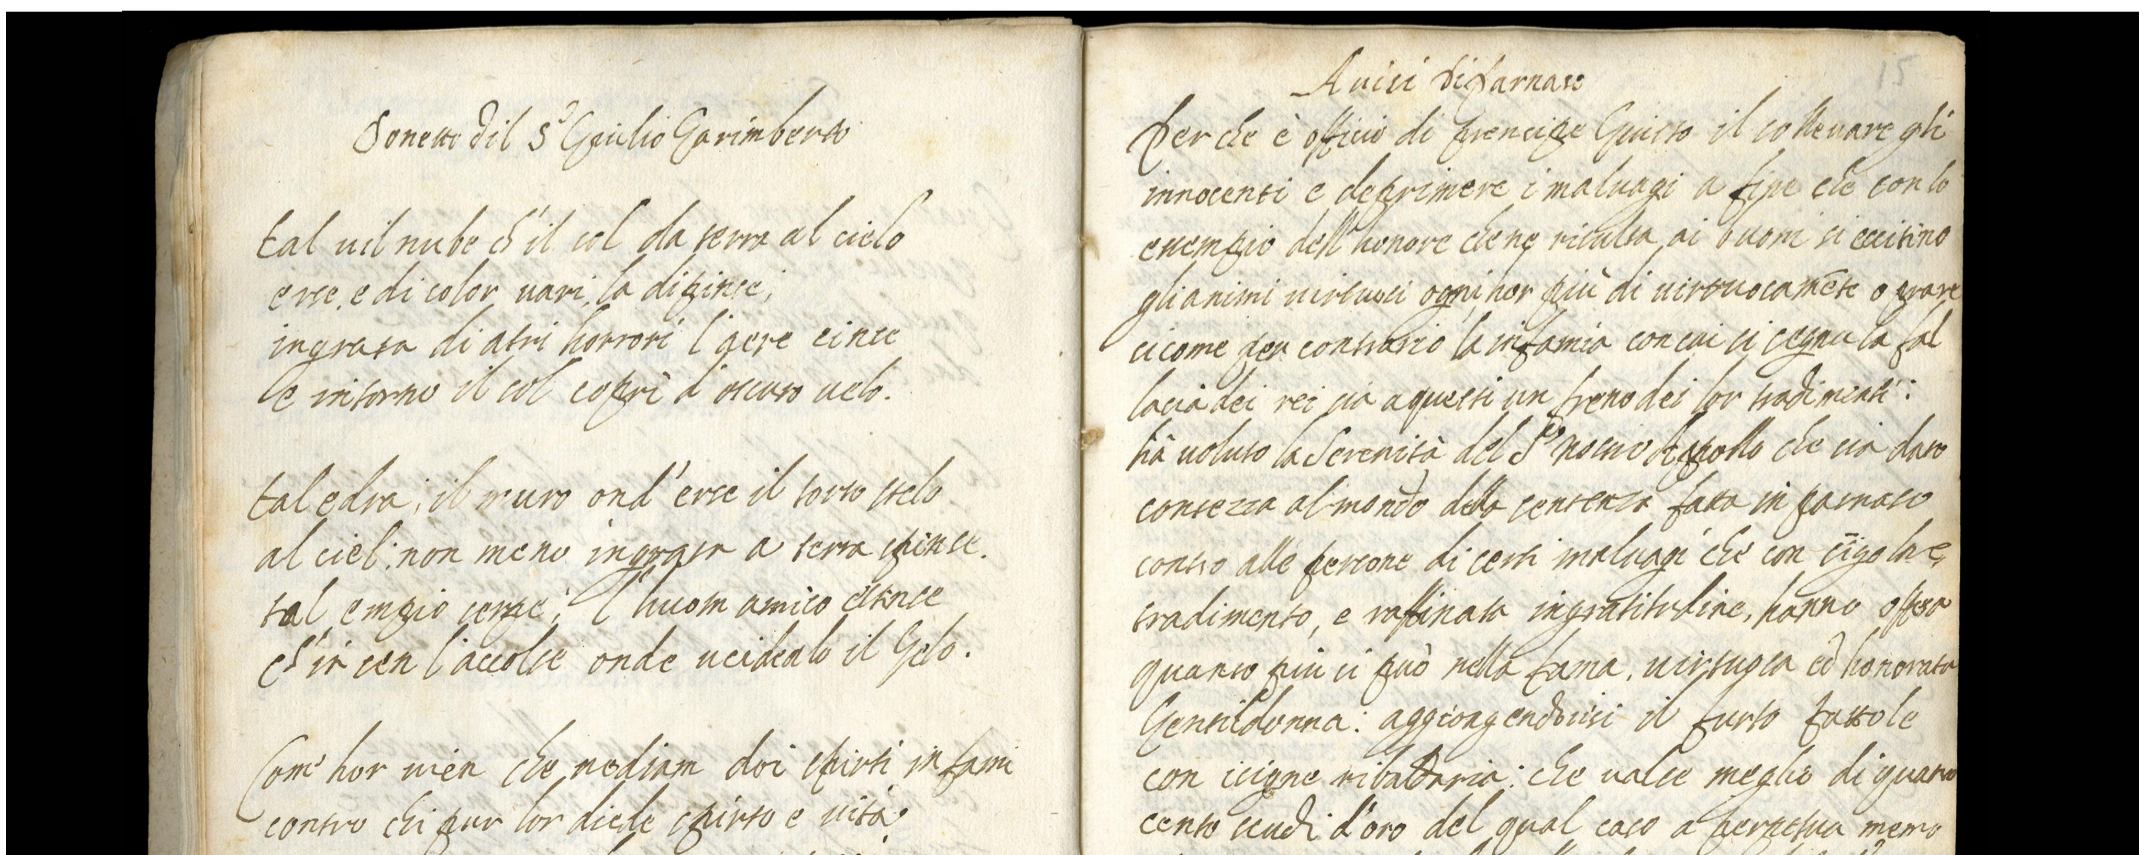 Sonetto dil S.r Giulio Garimberto
tal uil nube ch'il sol da terra al cielo
erse, e di color uari la dipinse;
ingrata di atri horrori l'aere cinse
e intorno il sol coprì d'oscuro uelo.
tal edra, il muro ond'erse il torto stelo
al ciel: non meno ingrata a terra spinse.
tal empio serpe; l'huom amico estinse
ch'in sen l'accolse onde ucidealo il Gelo.
Com' hor uien che uediam doi spirti infami
contro chi pur lor diede spirto e uita:
Auisi di Parnaso
15
Perche è officio di prencipe Giusto il solleuare gli
innocenti e deprimere i maluagi a fine che con lo
exempio dell'honore che ne risulta ai buoni si eccitino
gli animi uirtuosi ogni hor più di uirtuosamēte oprare
sicome per contrario la infamia con cui si segna la fal
lacia dei rei sia a questi un freno dei lor tradimenti:
hà uoluto la Serenità del S.r Nostro Apollo che sia dato
contezza al mondo della sentenza fatta in parnaso
contro alle persone di certi maluagi che con
tradimento, e raffinata ingratitudine, hanno offesa
quanto più si può nella fama, uirtuosa ed honorata
Gentildonna: aggiongendouisi il furto fattole
con insigne ribaldaria: che ualse meglio di quatro
cento scudi d'oro del qual caso a perpetua memo